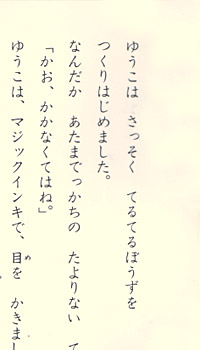 ゆうこは　さっそく　てるてるぼうずを
つくりはじめました。
なんだか　あたまでっかちの　たよりない
「かお、かかなくてはね。」
め
ゆうこは、マジックインキで、目を　かきまし